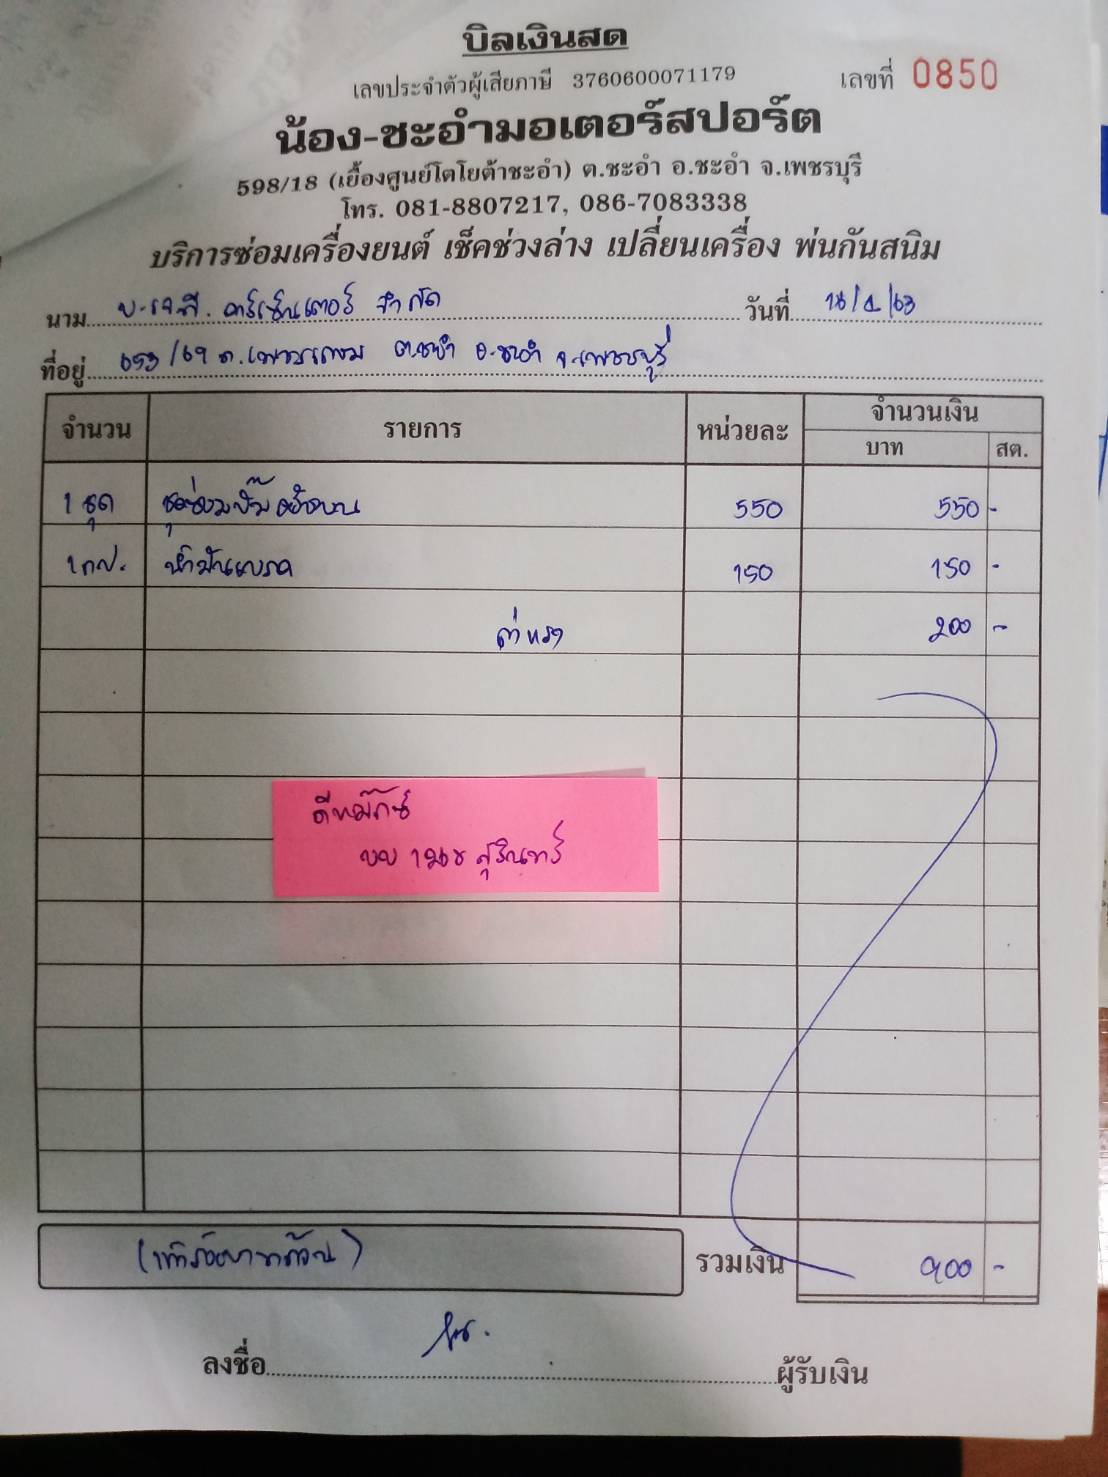 บิลเงินสด
เลขประจำตัวผู้เสียภาษี 3760600071179 เลขที่ 0850
น้อง-ชะอำมอเตอร์สปอร์ต
598/18 (เยื้องศูนย์โตโยต้าชะอำ) ต.ชะอำ อ.ชะอำ จ.เพชรบุรี
โทร. 081-8807217, 086-7083338
บริการซ่อมเครื่องยนต์ เช็คช่วงล่าง เปลี่ยนเครื่อง พ่นกันสนิม
นาม บ.เจ.ที. คาร์เซ็นเตอร์ จำกัด วันที่
ที่อยู่ 653/69 ถ.เพชรเกษม ต.ชะอำ อ.ชะอำ จ.เพชรบุรี
จำนวน รายการ หน่วยละ จำนวนเงิน
บาท สต.
1 ชุด ชุดซ่อมปั๊ม 550 550 -
1 กป. น้ำมันเบรค 150 150 -
ค่าแรง 200 -
ดีแม๊กซ์
สุรินทร์
(เก้าร้อยบาทถ้วน) รวมเงิน 900 -
ลงชื่อ ผู้รับเงิน